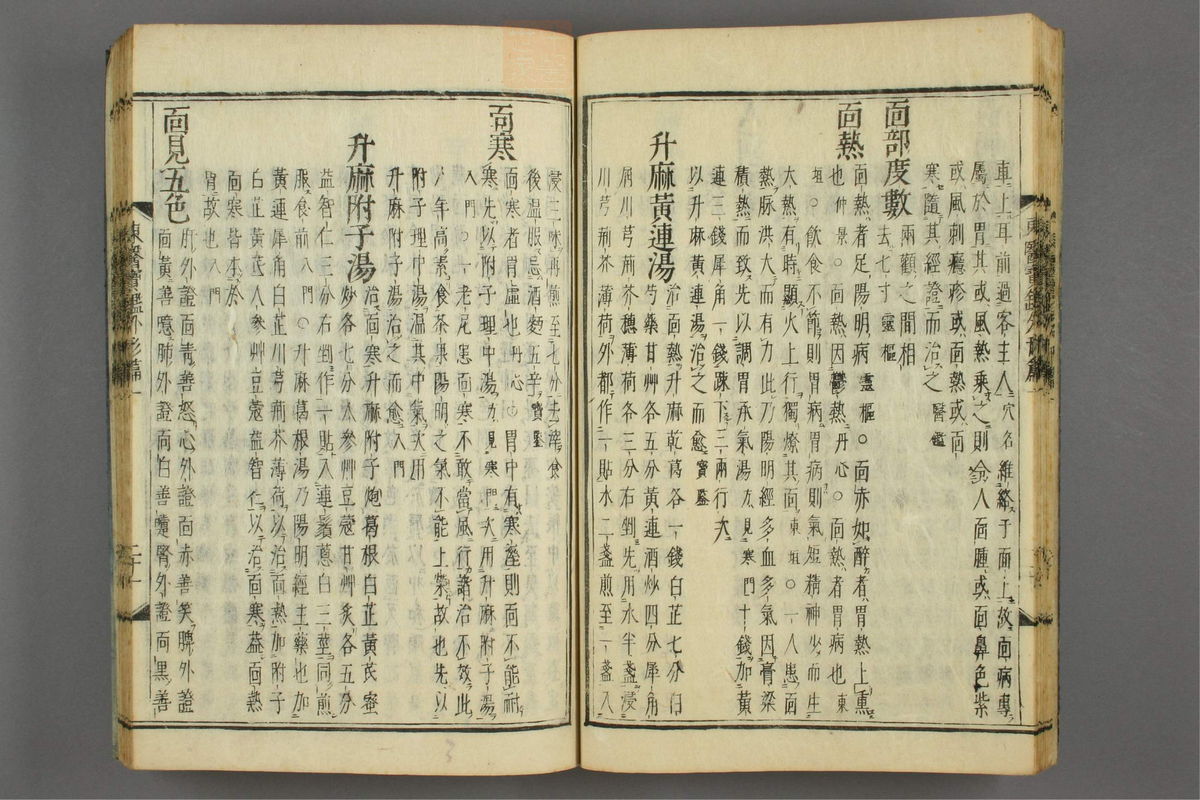 車上耳前過客主人穴名維絡于面上故面病專
屬於胃其或風熱乘之則令人面腫或面鼻色紫
或風刺癮疹或面熱或面
寒隨其經證而治之醫鑑
面部度數兩顴之間相
去七寸靈樞
面熱面熱者足陽明病靈樞○面赤如醉者胃熱上熏
也仲景○面熱因鬱熱丹心○面熱者胃病也東
垣○飲食不節則胃病胃病則氣短精神少而生
大熱有時顯火上行獨燎其面東垣○一人患面
熱脉洪大而有力此乃陽明經多血多氣因膏粱
積熱而致先以調胃承氣湯方見寒門七錢加黃
連三錢犀角一錢踈下三兩行次
以升麻黃連湯治之而愈寶鑒
升麻黃連湯治面熱升麻乾葛各一錢白芷七分白
芍藥甘艸各五分黃連酒炒四分犀角
屑川芎荊芥穗薄荷各三分右剉先用水半盞浸
川芎荊芥薄荷外都作一貼水二盞煎至一盞入
浸三味再煎至七分去滓食
後温服忌酒麪五辛寶鑒
面寒面寒者胃虛也丹心○胃中有寒濕則面不能耐
寒先以附子理中湯方見寒門次用升麻附子湯
入門○一老尼患面寒不敢當風行諸治不效此
人年高素食茶果陽明之氣不能上榮故也先以
附子理中湯温其中氣次用
升麻附子湯治之而愈入門
升麻附子湯治面寒升麻附子炮葛根白芷黃芪蜜
炒各七分人參艸豆蔻甘艸炙各五分
益智仁三分右剉作一貼入連鬚葱白三莖同煎
服食前入門○升麻葛根湯乃陽明經主藥也加
黃連犀角白芷川芎荊芥薄荷以治面熱加附子
白芷黃芪人參艸豆蔻益智仁以治面寒蓋面熱
面寒皆本於
胃故也入門
面見五色肝外證面青善怒心外證面赤善笑脾外證
面黃善噫肺外證面白善嚏腎外證面黑善
東醫寶鑑外形篇一
二十一